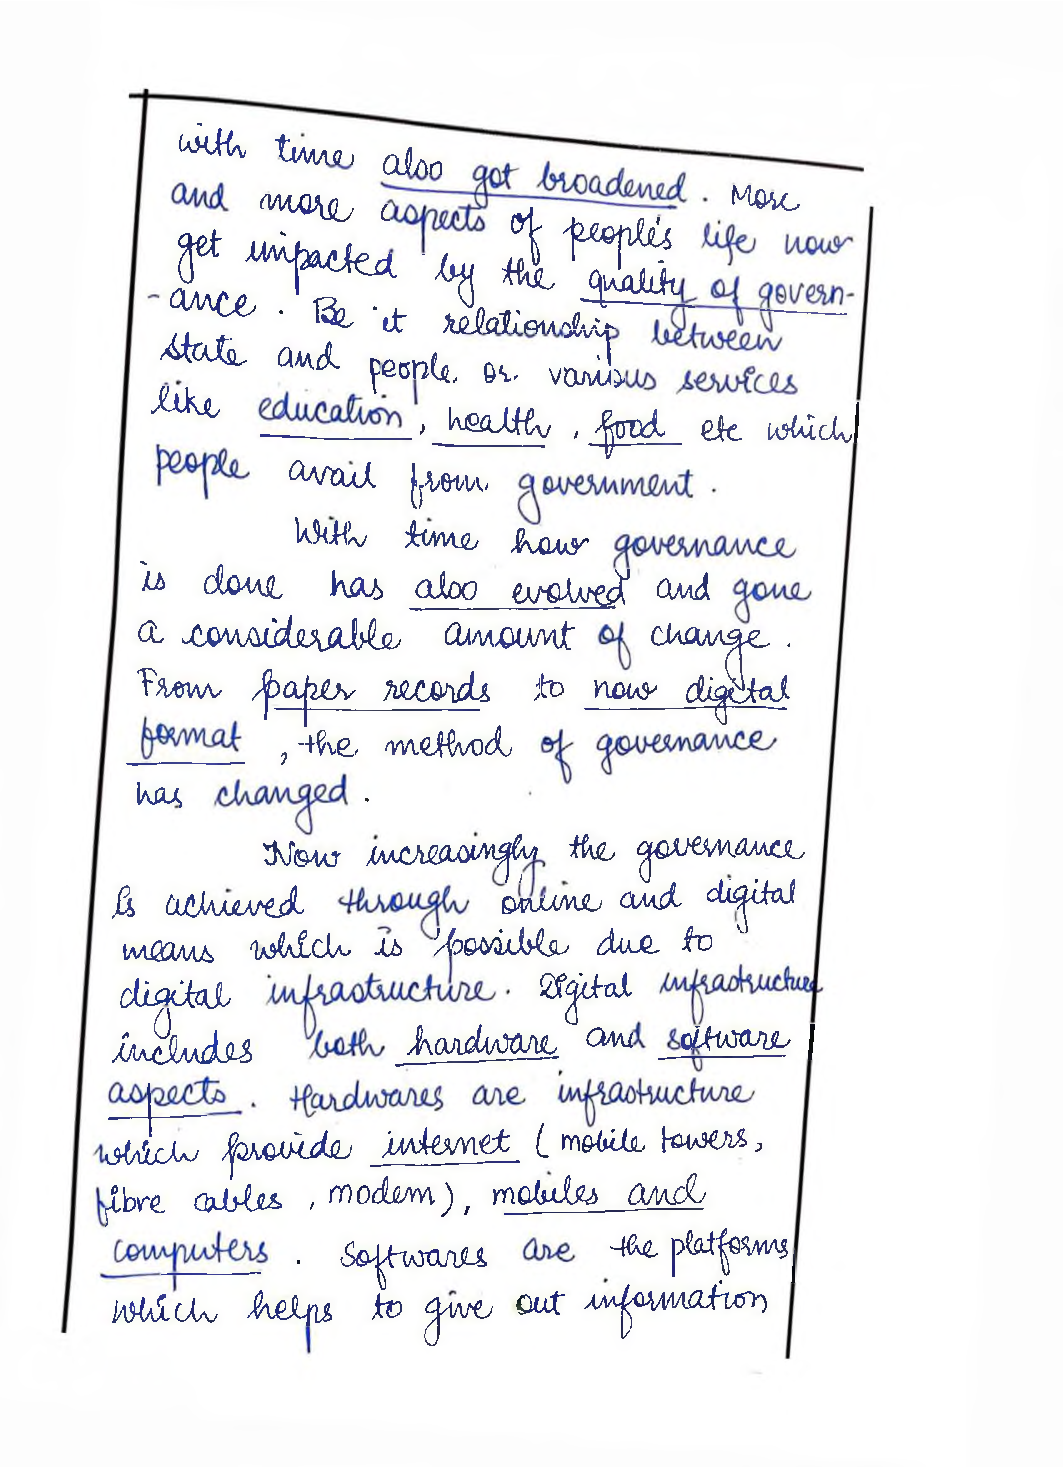 with time also got broadened. More
and more aspects of people's life now
get impacted by the quality of govern-
-ance. Be it relationship between
state and people. or various services
like education, health, food etc which
people avail from government.
With time how governance
is done has also evolved and gone
a considerable amount of change.
From paper records to now digital
format, the method of governance
has changed.
Now increasingly the governance
is achieved through online and digital
means which is possible due to
digital infrastructure. Digital infrastructure
includes both hardware and software
aspects. Hardwares are infrastructure
which provide internet (mobile towers,
fibre cables, modem), mobiles and
computers. Softwares are the platforms
which helps to give out information